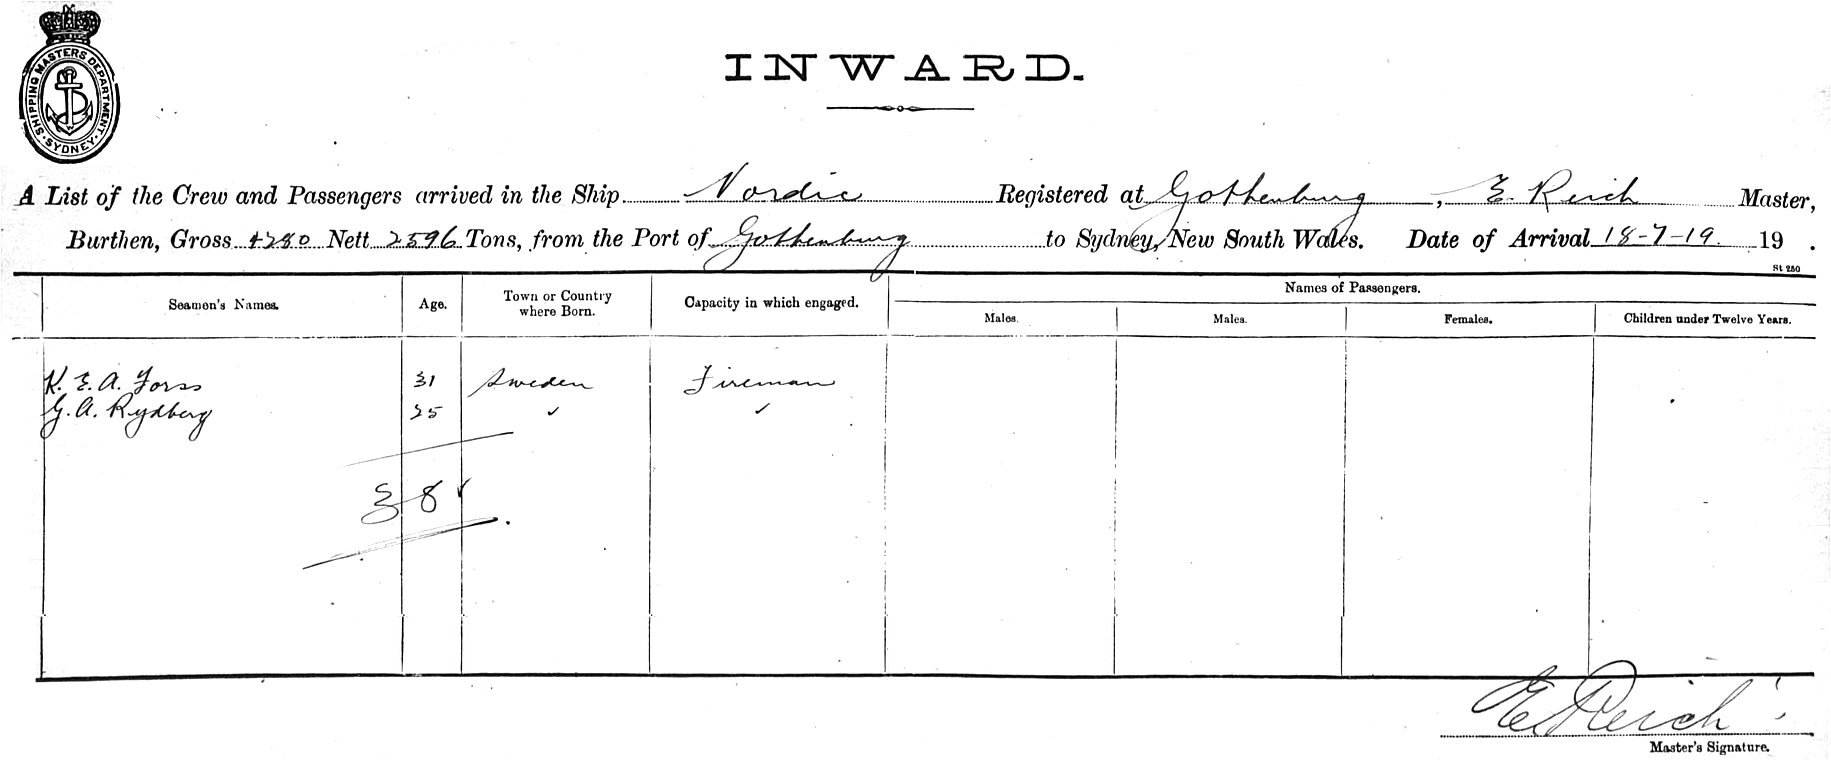 SHIPPING MASTERS DEPARTMENT
SYDNEY
INWARD.
A List of the Crew and Passengers arrived in the Ship Nordic Registered at Gothenburg, E. Reich Master,
Burthen, Gross 4280 Nett 2596 Tons, from the Port of Gothenburg to Sydney, New South Wales. Date of Arrival 18-7-19. 19 .
St 250
Seamen's Names. Age. Town or Country where Born. Capacity in which engaged. Names of Passengers.
Males. Males. Females. Children under Twelve Years.
K. E. A. Forss 31 Sweden Fireman
G. A. Rydberg 25 ✓ ✓
38 ✓
E Reich
Master's Signature.